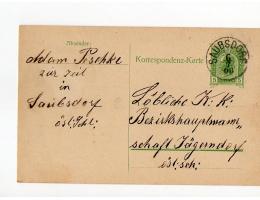 Absender:
Adam Peschke
zur Zeit
in
Saubsdorf
öst: Schl.
Korrespondenz-Karte
SAUBSDORF
5
Löbliche K: K:
Bezirkshauptmann-
schaft Jägerndorf
öst: sch: